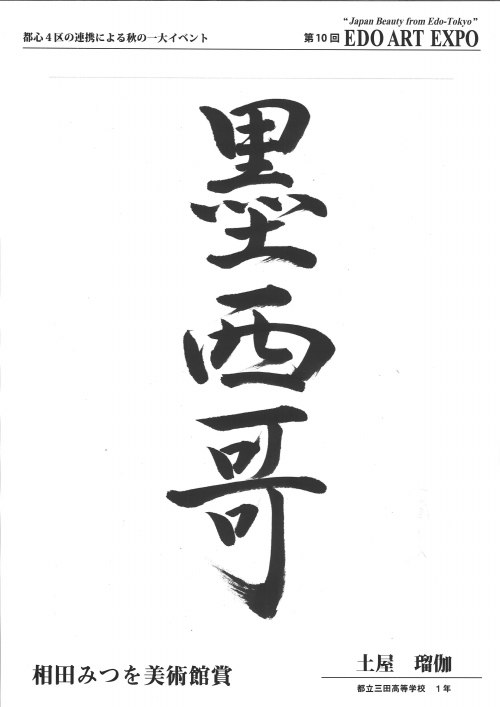 都心4区の連携による秋の一大イベント
"Japan Beauty from Edo-Tokyo"
第10回 EDO ART EXPO
墨西哥
相田みつを美術館賞
土屋 瑠伽
都立三田高等学校 1年